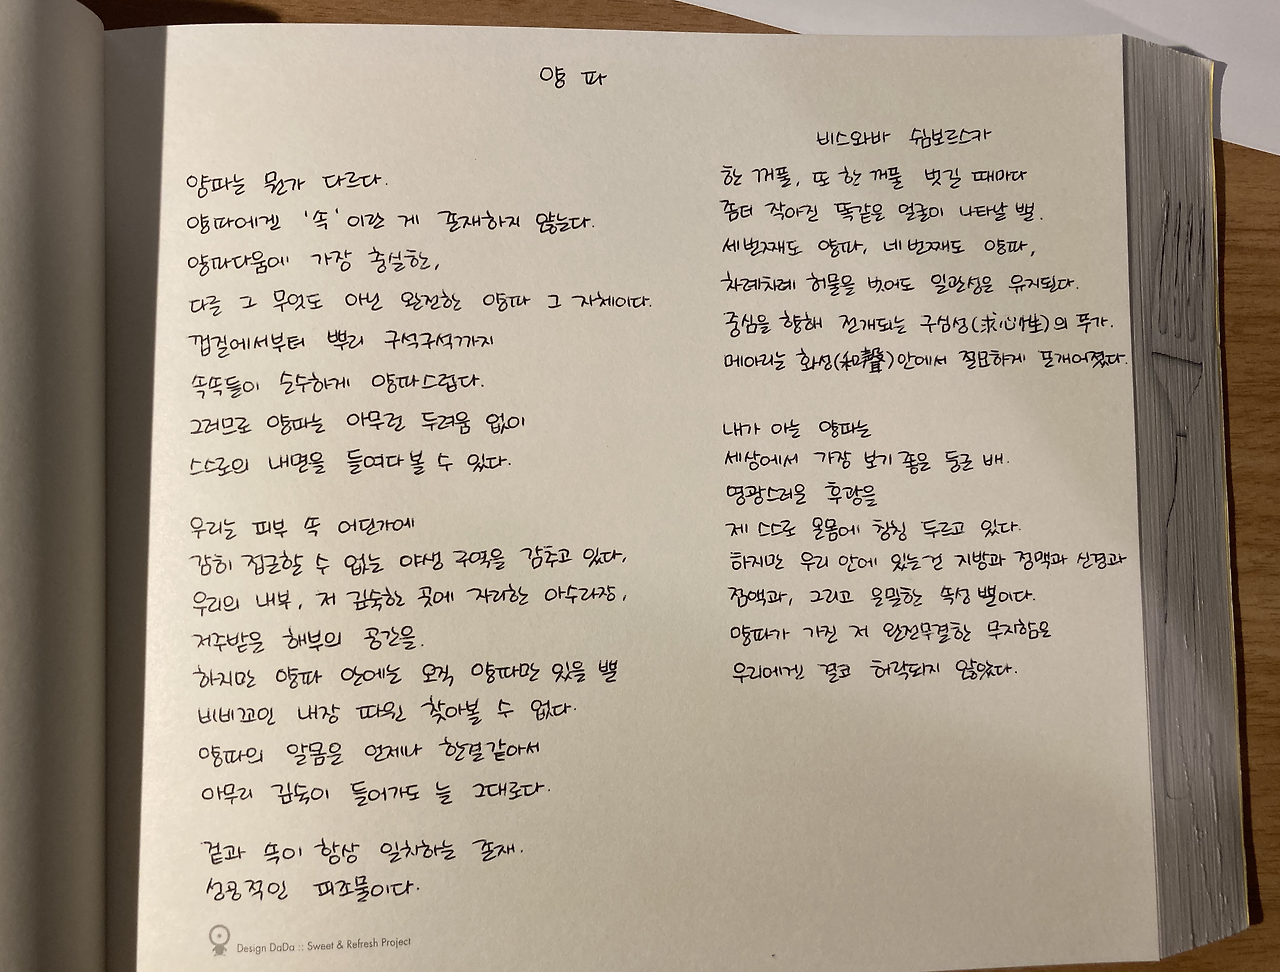 양파
비스와바 쉼보르스카
양파는 뭔가 다르다.
양파에겐 '속'이란 게 존재하지 않는다.
양파다움에 가장 충실한,
다른 그 무엇도 아닌 완전한 양파 그 자체이다.
껍질에서부터 뿌리 구석구석까지
속속들이 순수하게 양파스럽다.
그러므로 양파는 아무런 두려움 없이
스스로의 내면을 들여다볼 수 있다.
우리는 피부 속 어딘가에
감히 접근할 수 없는 야생 구역을 감추고 있다,
우리의 내부, 저 깊숙한 곳에 자리한 아수라장,
저주받은 해부의 공간을.
하지만 양파 안에는 오직 양파만 있을 뿐
비비꼬인 내장 따윈 찾아볼 수 없다.
양파의 알몸은 언제나 한결같아서
아무리 깊숙이 들어가도 늘 그대로다.
겉과 속이 항상 일치하는 존재.
성공적인 피조물이다.
한 꺼풀, 또 한 꺼풀 벗길 때마다
좀더 작아진 똑같은 얼굴이 나타날 뿐.
세번째도 양파, 네번째도 양파,
차례차례 허물을 벗어도 일관성은 유지된다.
중심을 향해 전개되는 구심성(求心性)의 푸가.
메아리는 화성(和聲)안에서 절묘하게 포개어졌다.
내가 아는 양파는
세상에서 가장 보기 좋은 둥근 배.
영광스러운 후광을
제 스스로 온몸에 칭칭 두르고 있다.
하지만 우리 안에 있는건 지방과 정맥과 신경과
점액과, 그리고 은밀한 속성 뿐이다.
양파가 가진 저 완전무결한 무지함은
우리에겐 결코 허락되지 않았다.
Design DaDa :: Sweet & Refresh Project